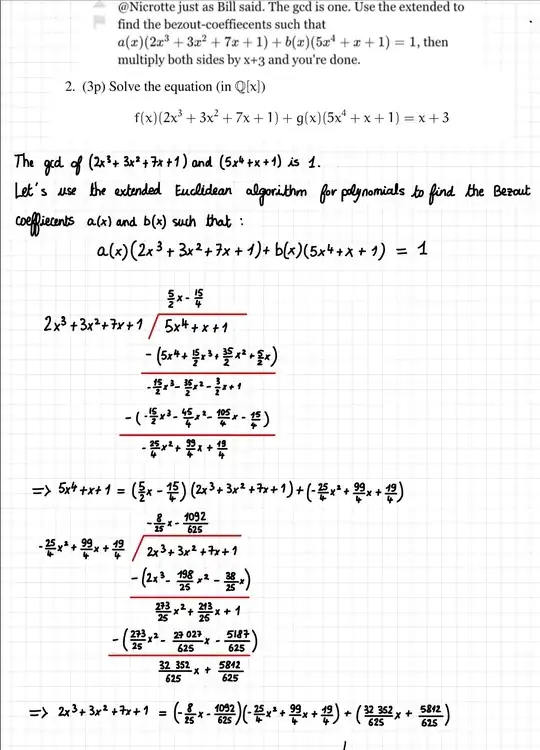 @Nicrotte just as Bill said. The gcd is one. Use the extended to
find the bezout-coeffiecents such that
a(x)(2x³ + 3x² + 7x + 1) + b(x)(5x⁴ + x + 1) = 1, then
multiply both sides by x+3 and you're done.
2. (3p) Solve the equation (in ℚ[x])
f(x)(2x³ + 3x² + 7x + 1) + g(x)(5x⁴ + x + 1) = x + 3
The gcd of (2x³ + 3x² + 7x + 1) and (5x⁴ + x + 1) is 1.
Let's use the extended Euclidean algorithm for polynomials to find the Bezout
coeffiecents a(x) and b(x) such that :
a(x)(2x³ + 3x² + 7x + 1) + b(x)(5x⁴ + x + 1) = 1
5/2 x - 15/4
2x³ + 3x² + 7x + 1 / 5x⁴ + x + 1
- (5x⁴ + 15/2 x³ + 35/2 x² + 5/2 x)
- 15/2 x³ - 35/2 x² - 3/2 x + 1
- (- 15/2 x³ - 45/4 x² - 105/4 x - 15/4)
- 25/4 x² + 99/4 x + 19/4
=> 5x⁴ + x + 1 = (5/2 x - 15/4)(2x³ + 3x² + 7x + 1) + (- 25/4 x² + 99/4 x + 19/4)
- 8/25 x - 1092/625
- 25/4 x² + 99/4 x + 19/4 / 2x³ + 3x² + 7x + 1
- (2x³ - 198/25 x² - 38/25 x)
273/25 x² + 213/25 x + 1
- (273/25 x² - 27 027/625 x - 5187/625)
32 352/625 x + 5812/625
=> 2x³ + 3x² + 7x + 1 = (- 8/25 x - 1092/625)(- 25/4 x² + 99/4 x + 19/4) + (32 352/625 x + 5812/625)